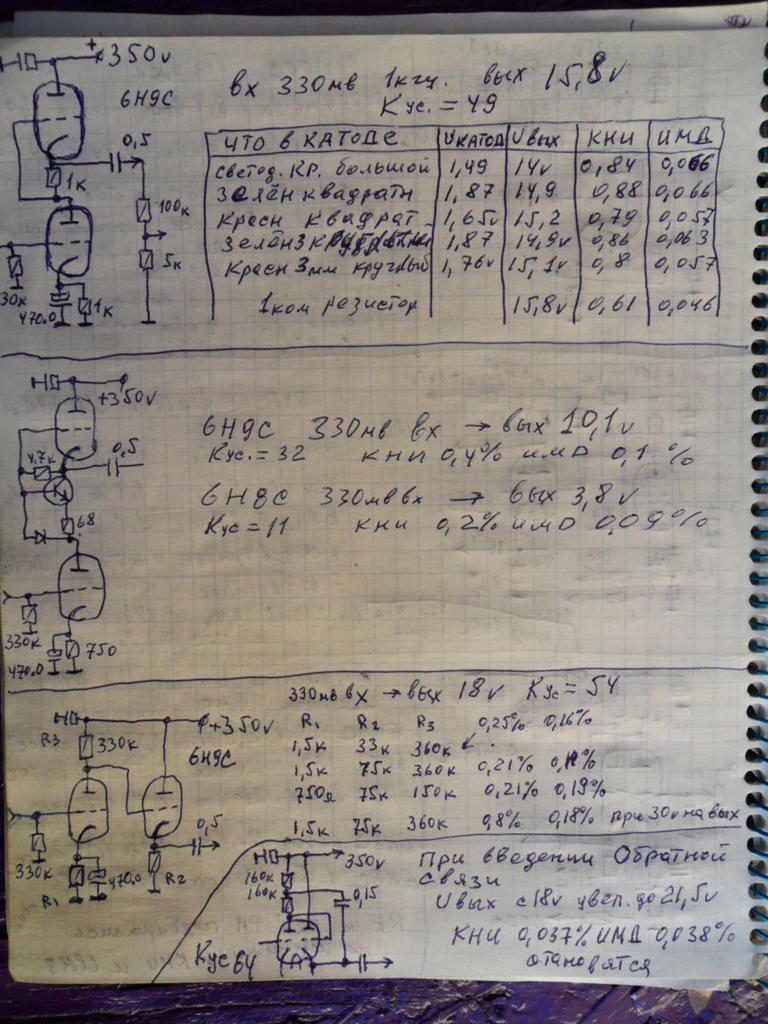 +350v
6Н9С
вх 330мв 1кгц. вых 15,8v
Кус. = 49
0,5
1к
100к
5к
330к
470.0
1к
ЧТО В КАТОДЕ Uкатод Uвых КНИ ИМД
светод. КР. большой 1,49 14v 0,84 0,066
зелён квадратн 1,87 14,9 0,88 0,066
красн квадрат 1,65v 15,2 0,79 0,057
зелён 3 1,87 14,9v 0,86 0,063
красн 3мм круглый 1,76v 15,1v 0,8 0,057
1ком резистор 15,8v 0,61 0,046
+350v
0,5
4,7к
68
330к
470.0
750
6Н9С 330мв вх → вых 10,1v
Кус. = 32 КНИ 0,4% имд 0,1%
6Н8С 330мв вх → вых 3,8v
Кус = 11 КНИ 0,2% имд 0,09%
330мв вх → вых 18v Кус = 54
R1 R2 R3 0,25% 0,16%
1,5к 33к 360к
1,5к 75к 360к 0,21%
750Ω 75к 150к 0,21% 0,19%
1,5к 75к 360к 0,8% 0,18% при 30v на вых
+350v
R3
330к
6Н9С
0,5
330к
R1
470.0
R2
350v
160к
160к
0,15
Кус 64
При введении Обратной
связи
Uвых с 18v увел. до 21,5v
КНИ 0,037% ИМД 0,038%
становятся